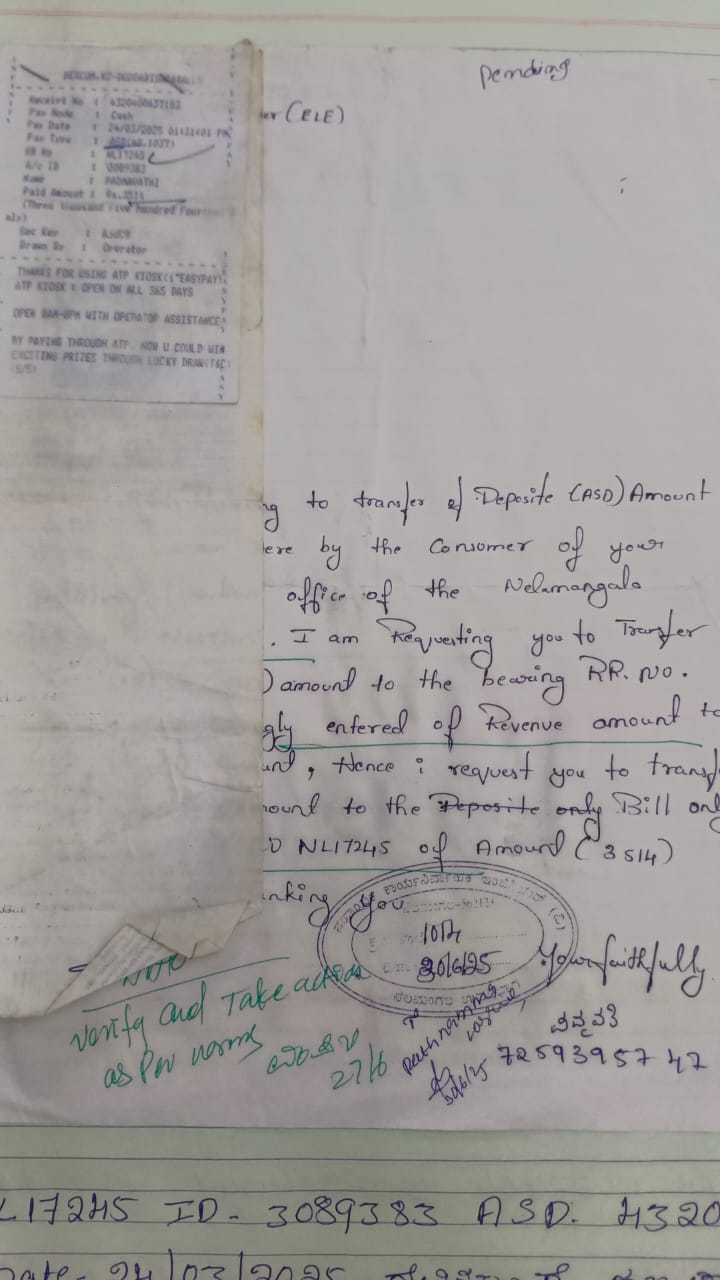 pending
BESCOM.
Receipt No : 4320400637103
Pay Mode : Cash
Pay Date : 24/03/2025 01:31:01 PM
Pay Type :
RR No : NL17245
A/c ID : 3089383
Name : PADMAVATHI
Paid Amount : Rs.3514
(Three thousand Five hundred Fourteen
nly)
Sec Key :
Drawn By : Operator
THANKS FOR USING ATP KIOSK("EASYPAY)
ATP KIOSK : OPEN ON ALL 365 DAYS
OPEN 8AM-8PM WITH OPERATOR ASSISTANCE
BY PAYING THROUGH ATP, NOW U COULD WIN
EXCITING PRIZES THROUGH LUCKY DRAW(T&C)
(S/S)
er (ELE)
ng to transfer of Deposite (ASD) Amount
ere by the Consomer of your
office of the Nelamangala
. I am Requesting you to Transfer
) amount to the bearing RR. No.
gly entered of Revenue amount to
unt, Hence i request you to transf
mount to the Deposite only Bill only
O NL17245 of Amount (3514)
anking You
Your faithfully
30/6/25
Verify and Take action
as Per norms
27/6
30/6/25
7259395747
L17245 ID - 3089383 ASD. 4320
Date - 24/03/2025